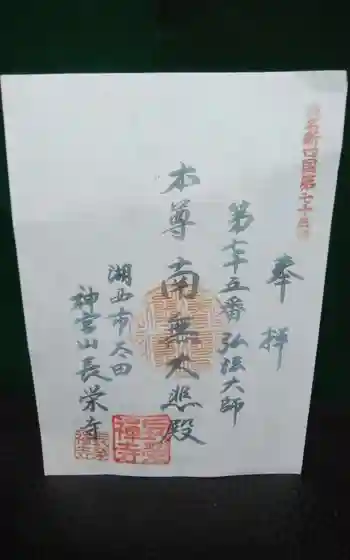 奉拝
第七十五番 弘法大師
本尊 南無大悲殿
湖西市太田
神宮山長栄寺
新四国第七十五
長栄禅寺